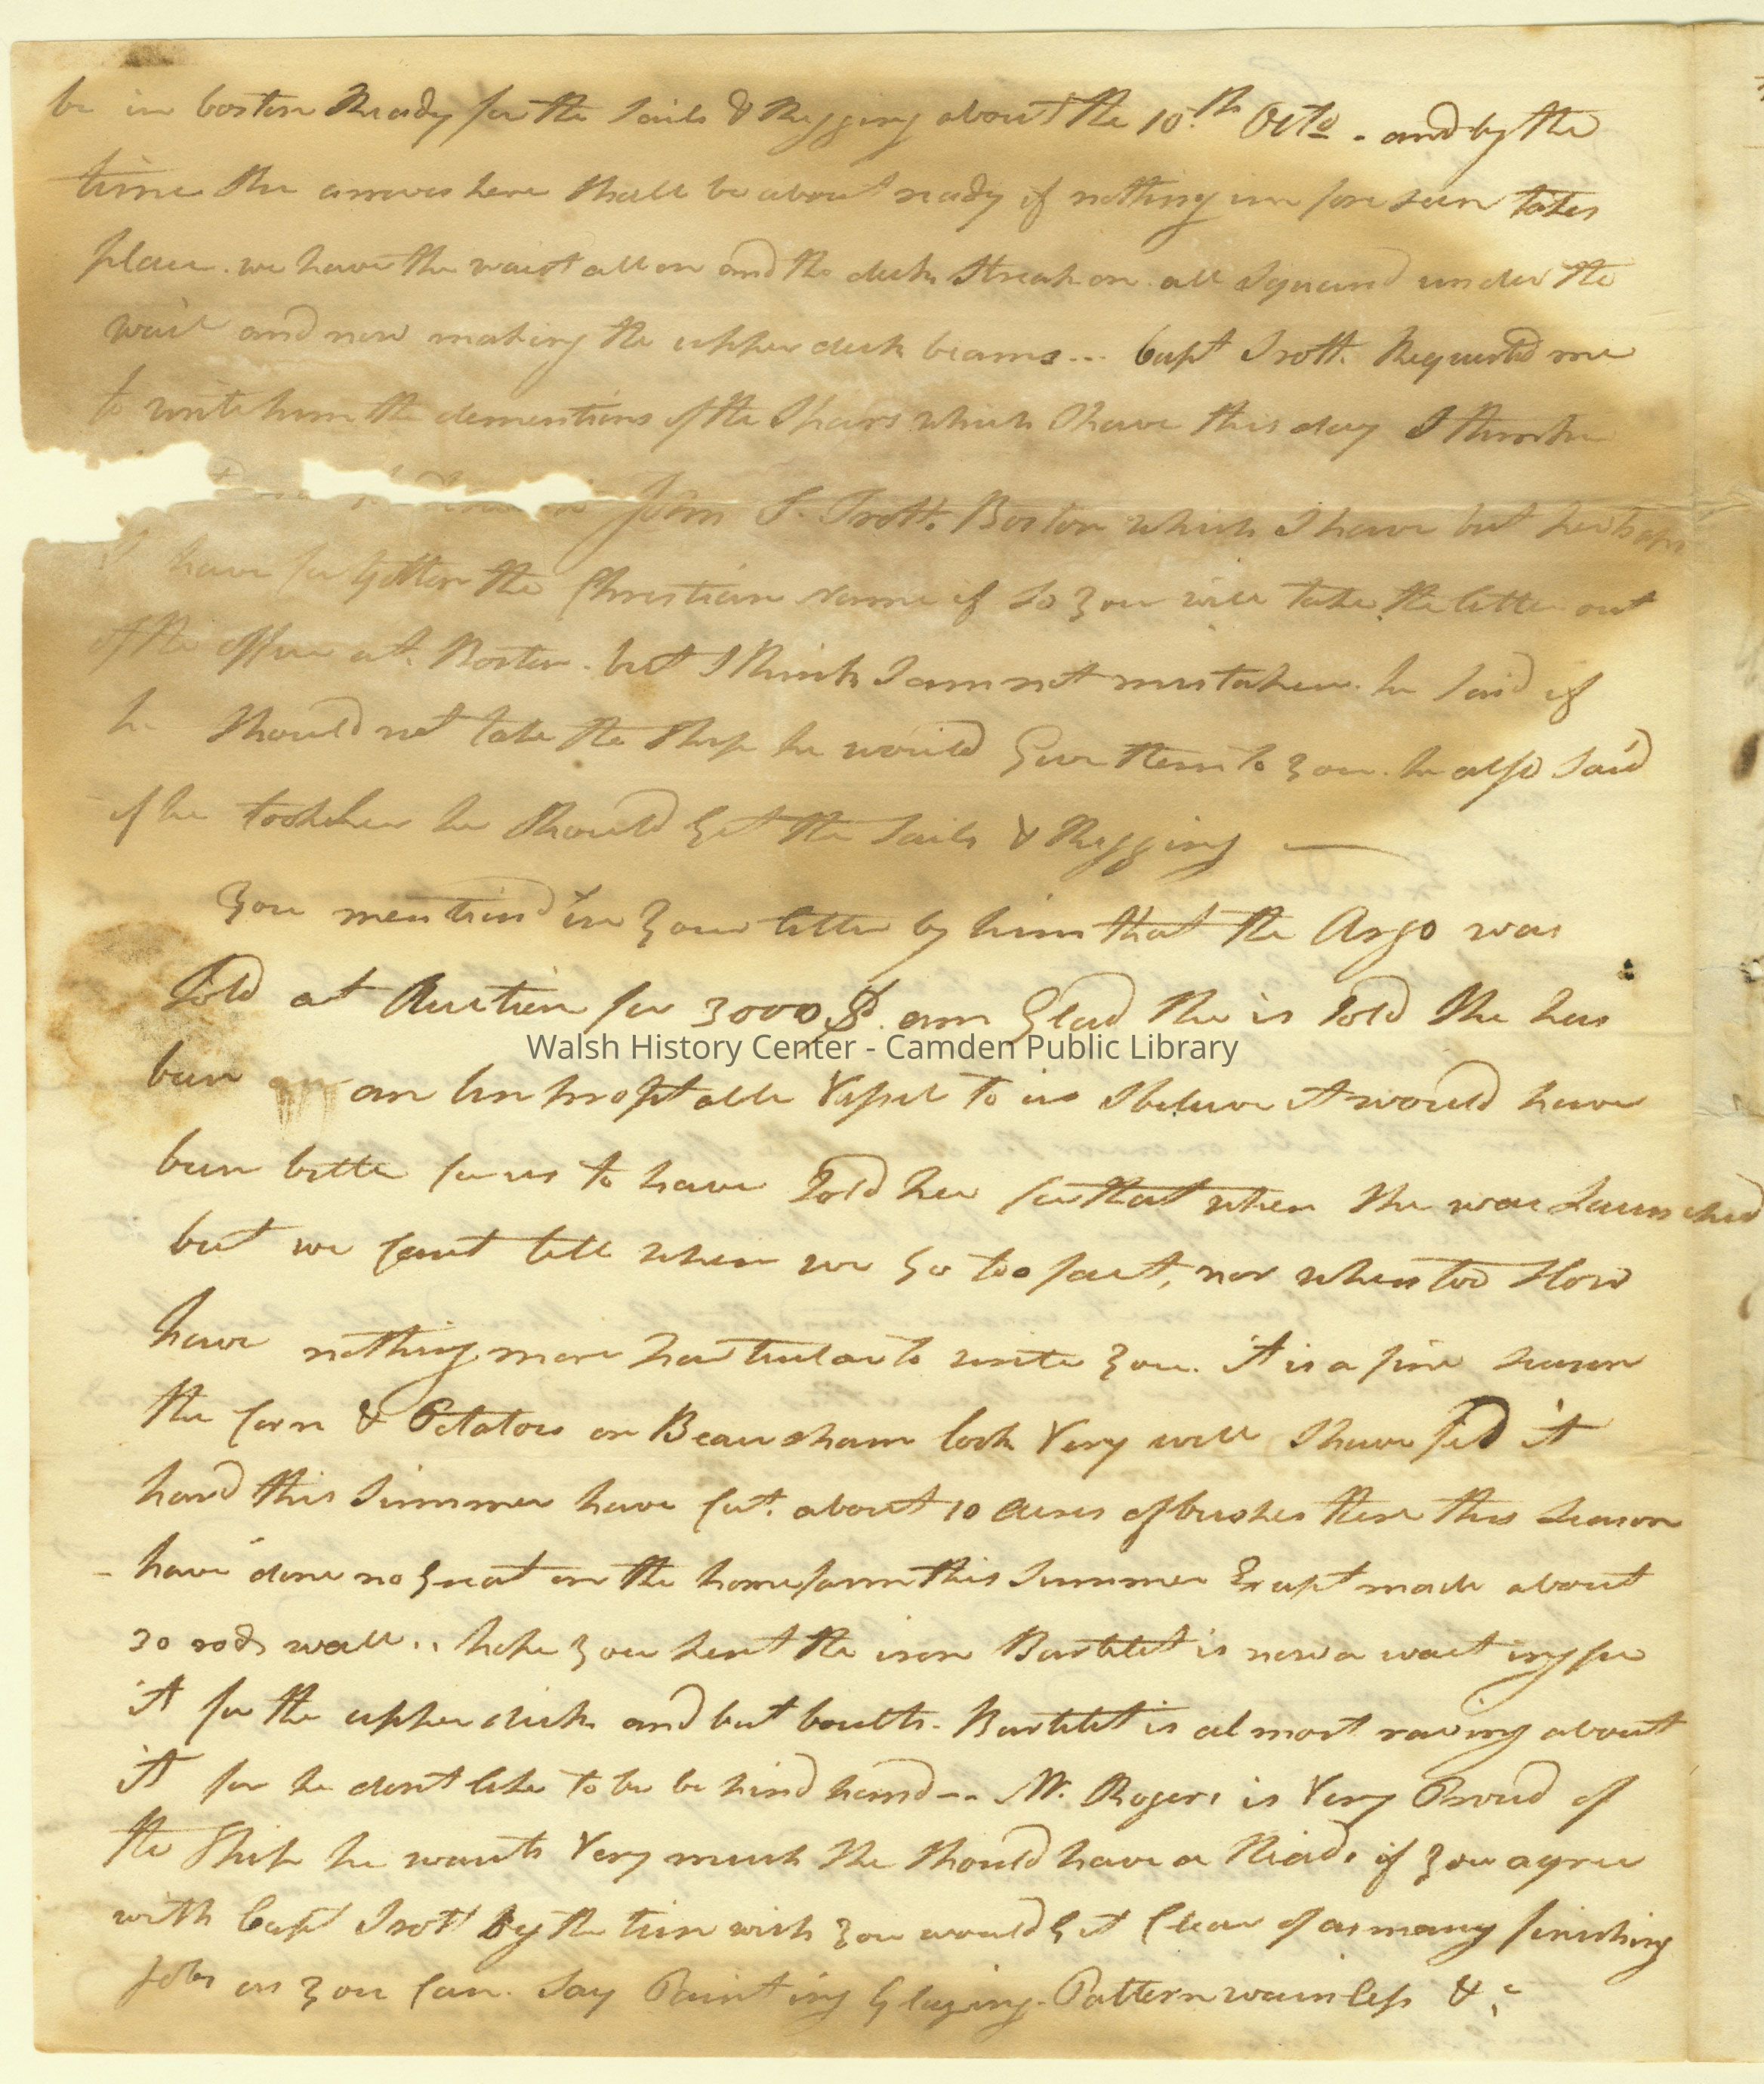 be in boston Ready for the Sails & Rigging about the 10.th Octo. and by the
time She arrives here Shall be about ready if nothing un fore seen takes
place. we have the waist all on and the deck Streak on. all Squared under the
waist and now making the upper deck beams... Capt Trott. Requested me
to write him the dementions of the Spars which I have this day I think he
John S. Trott. Boston which I have but perhaps
I have for gotten the Christian name if So you will take the letter out
of the office at. Boston. but I think I am not mistaken. he Said if
he Should not take the Ship he would Give them to you. he also Said
if he took her he Should Get the Sails & Rigging —
You mentiond in your letter by him that the Argo was
Sold at Auction for 3000 $. am Glad She is Sold She has
been an Unprofitable Vessel to us I believe it would have
been better for us to have Sold her for that when She was Launched
but we cant tell when we Go too fast, nor when too Slow
have nothing more particular to write you. it is a fine season
the Corn & Potatoes on Beaucham look Very well I have fed it
hard this Summer have Cut. about 10 acres of bushes there this Season
- have done no Great on the home farm this Summer Except made about
30 rods wall.. hope you Sent the iron Bartlett is now a wait ing for
it for the upper deck and but boults. Bartlett is al most raving about
it for he dont like to be be hind hand -- Mr. Rogers is Very Proud of
the Ship he wants Very much She Should have a Head. if you agree
with Capt Trott by the tun wish you would Get Clear of as many finishing
Jobs as you Can. Say Painting Glazing. Pattern &c
Walsh History Center - Camden Public Library